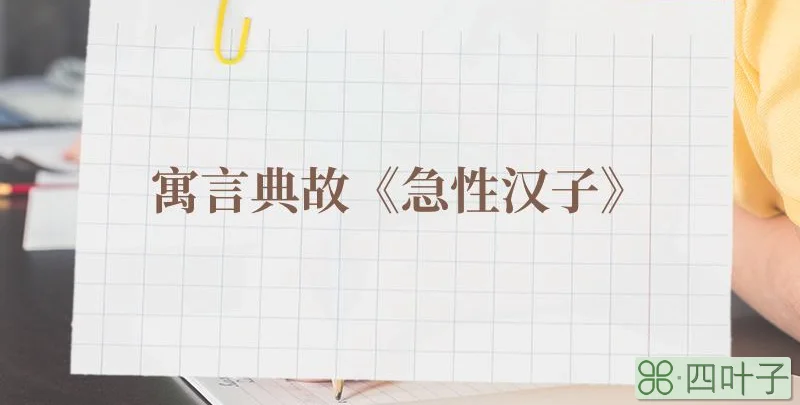 寓言典故《急性汉子》
四叶子